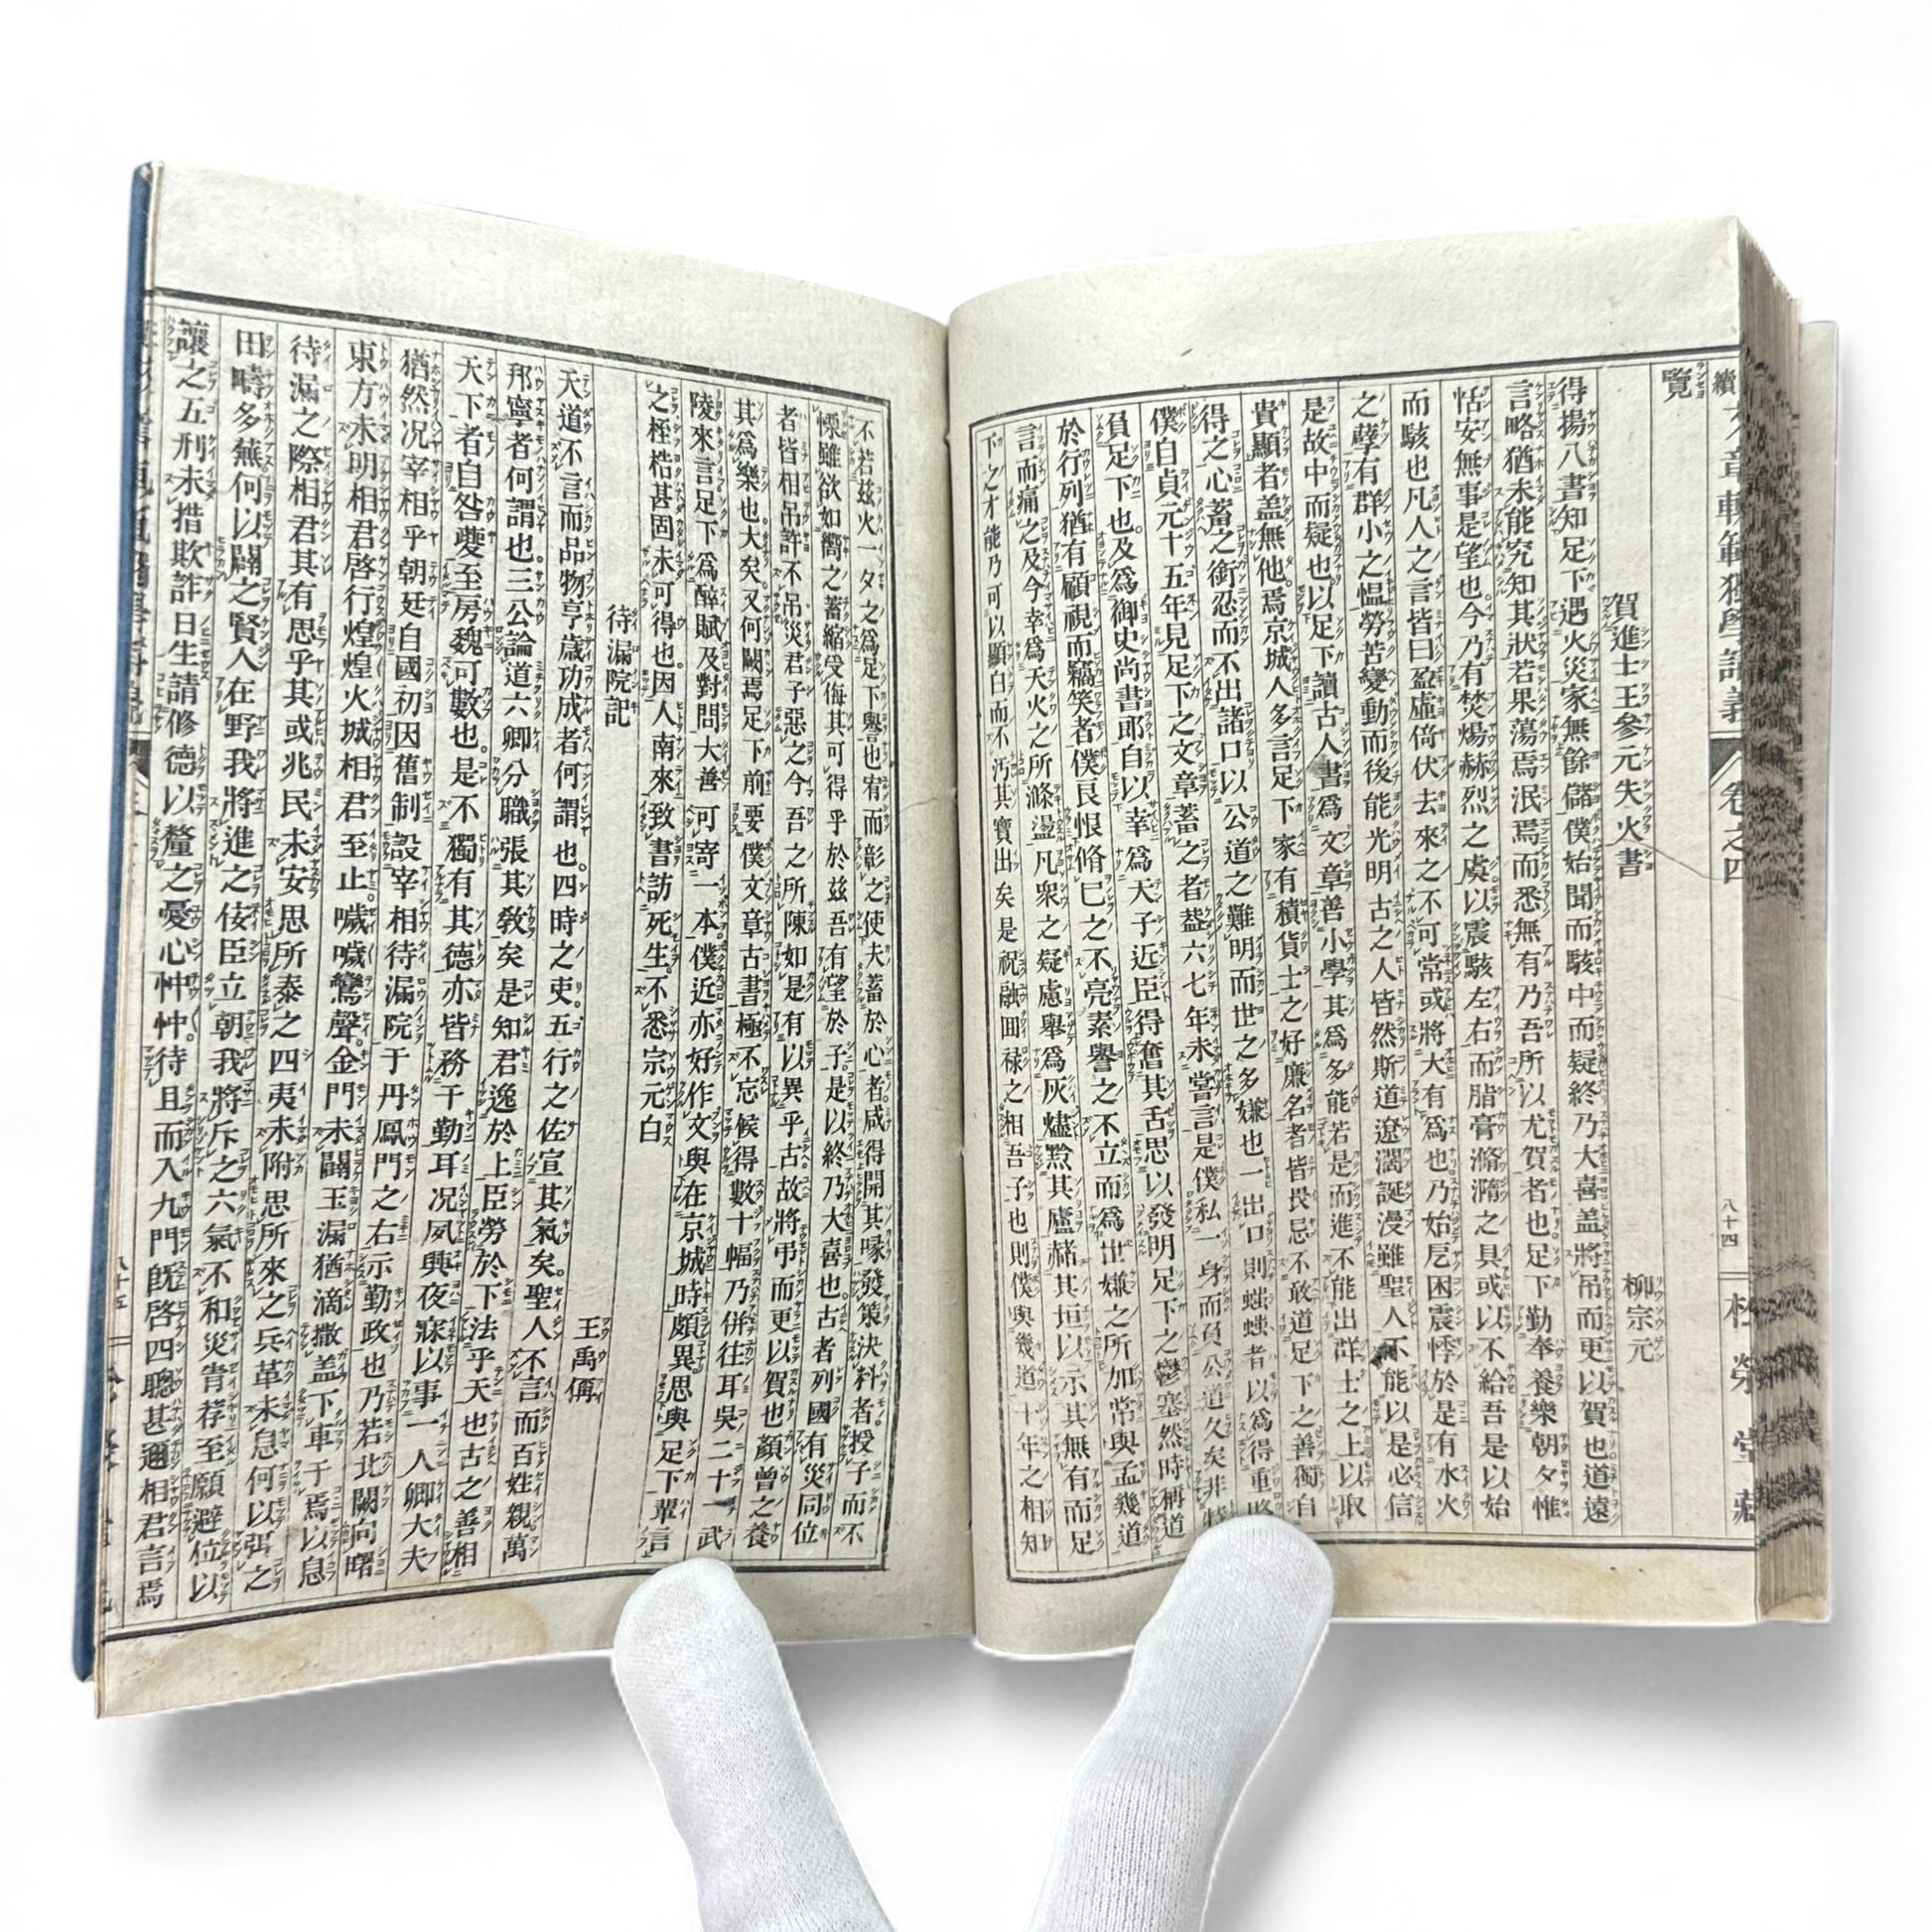 續文章軌範獨學講義 卷之四 八十四
覽
賀進士王參元失火書 柳宗元
得揚八書知足下遇火災家無餘儲僕始聞而駭中而疑終乃大喜蓋將吊而更以賀也道遠
言略猶未能究知其狀若果蕩焉泯焉而悉無有乃吾所以尤賀者也足下勤奉養樂朝夕惟
恬安無事是望也今乃有焚煬赫烈之虞以震駭左右而脂膏滫瀡之具或以不給吾是以始
而駭也凡人之言皆曰盈虛倚伏去來之不可常或將大有爲也乃始厄困震悸於是有水火
之孽有群小之慍勞苦變動而後能光明古之人皆然斯道遼濶誕漫雖聖人不能以是必信
是故中而疑也以足下讀古人書爲文章善小學其爲多能若是而進不能出群士之上以取
貴顯者盖無他焉京城人多言足下家有積貨士之好廉名者皆畏忌不敢道足下之善獨自
得之心蓄之銜忍而不出諸口以公道之難明而世之多嫌也一出口則蚩蚩者以爲得重賂
僕自貞元十五年見足下之文章蓄之者盖六七年未嘗言是僕私一身而負公道久矣非特
負足下也及爲御史尚書郎自以幸爲天子近臣得奮其舌思以發明足下之鬱塞然時稱道
於行列猶有顧視而竊笑者僕良恨脩已之不亮素譽之不立而爲世嫌之所加常與孟幾道
言而痛之及今幸爲天火之所滌盪凡衆之疑慮舉爲灰燼黔其廬赭其垣以示其無有而足
下之才能乃可以顯白而不汚其實出矣是祝融回祿之相吾子也則僕與幾道十年之相知
不若茲火一夕之爲足下譽也宥而彰之使夫蓄於心者咸得開其喙發策決科者授子而不
慄雖欲如嚮之蓄縮受侮其可得乎於茲吾有望於子是以終乃大喜也古者列國有災同位
者皆相吊許不吊災君子惡之今吾之所陳如是有以異乎古故將弔而更以賀也顏曾之養
其爲樂也大矣又何闕焉足下前要僕文章古書極不忘候得數十幅乃併往耳吳二十一武
陵來言足下爲醉賦及對問大善可寄一本僕近亦好作文與在京城時頗異思與足下輩言
之桎梏甚固未可得也因人南來致書訪死生不悉宗元白
待漏院記 王禹偁
天道不言而品物亨歲功成者何謂也四時之吏五行之佐宣其氣矣聖人不言而百姓親萬
邦寧者何謂也三公論道六卿分職張其敎矣是知君逸於上臣勞於下法乎天也古之善相
天下者自咎夔至房魏可數也是不獨有其德亦皆務于勤耳况夙興夜寐以事一人卿大夫
猶然况宰相乎朝廷自國初因舊制設宰相待漏院于丹鳳門之右示勤政也乃若北闕向曙
東方未明相君啓行煌煌火城相君至止噦噦鸞聲金門未闢玉漏猶滴撤盖下車于焉以息
待漏之際相君其有思乎其或兆民未安思所泰之四夷未附思所來之兵革未息何以弭之
田疇多蕪何以闢之賢人在野我將進之佞臣立朝我將斥之六氣不和災眚荐至願避位以
讓之五刑未措欺詐日生請修德以釐之憂心忡忡待旦而入九門既啓四聰甚邇相君言焉